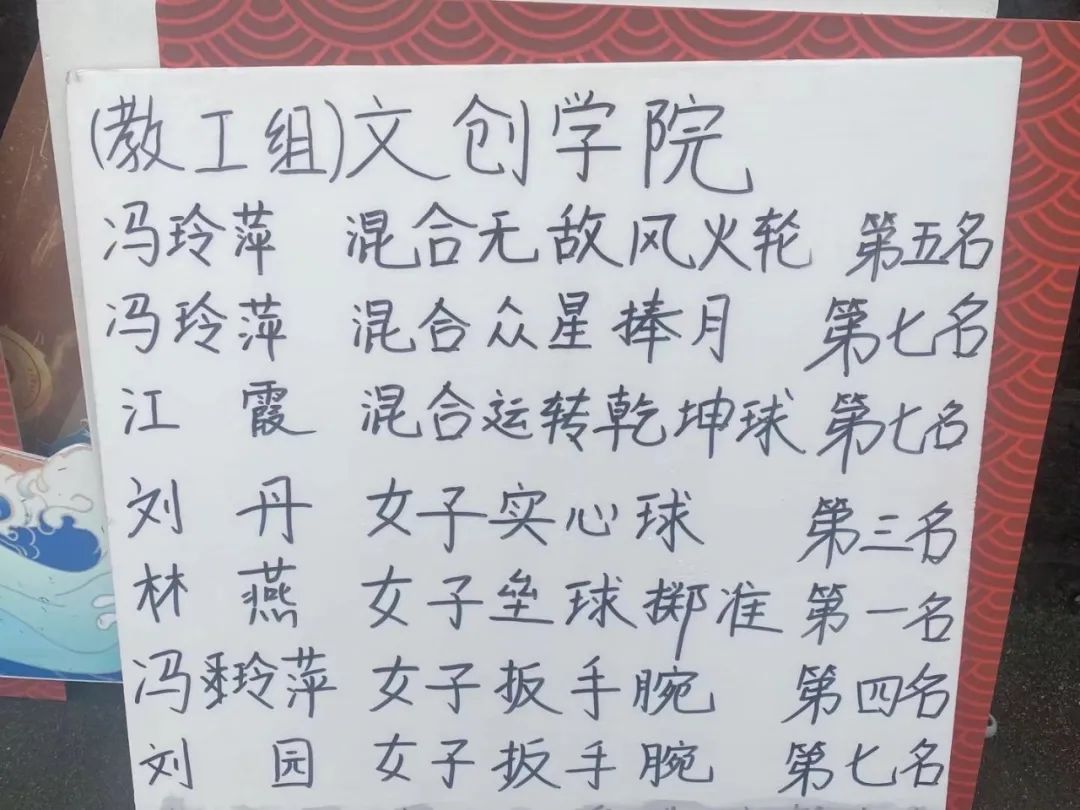 (教工组)文创学院
冯玲萍 混合无敌风火轮 第五名
冯玲萍 混合众星捧月 第七名
江霞 混合运转乾坤球 第七名
刘丹 女子实心球 第三名
林燕 女子垒球掷准 第一名
冯玲萍 女子扳手腕 第四名
刘园 女子扳手腕 第七名